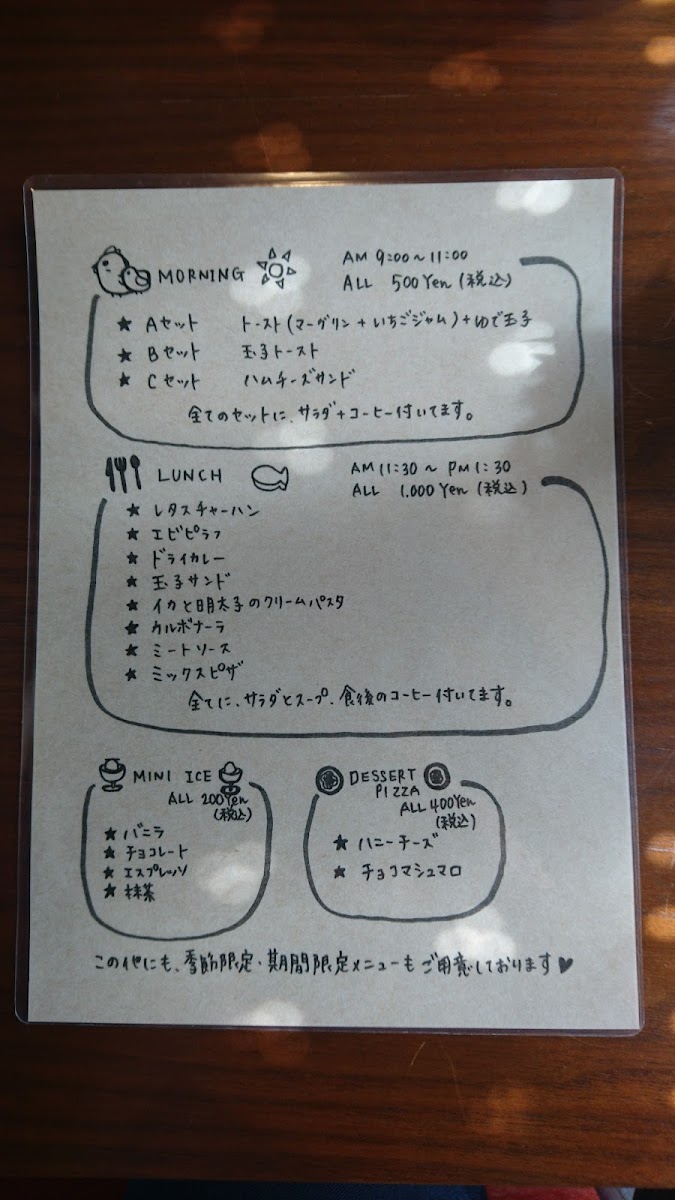 MORNING AM 9:00~11:00
ALL 500Yen (税込)
★ Aセット トースト(マーガリン+いちごジャム)+ゆで玉子
★ Bセット 玉子トースト
★ Cセット ハムチーズサンド
全てのセットに、サラダ+コーヒー付いてます。
LUNCH AM 11:30 ~ PM 1:30
ALL 1.000 Yen (税込)
★ レタスチャーハン
★ エビピラフ
★ ドライカレー
★ 玉子サンド
★ イカと明太子のクリームパスタ
★ カルボナーラ
★ ミートソース
★ ミックスピザ
全てに、サラダとスープ、食後のコーヒー付いてます。
MINI ICE
ALL 200Yen
(税込)
★ バニラ
★ チョコレート
★ エスプレッソ
★ 抹茶
DESSERT
PIZZA
ALL 400Yen
(税込)
★ ハニーチーズ
★ チョコマシュマロ
この他にも、季節限定・期間限定メニューもご用意しております♥